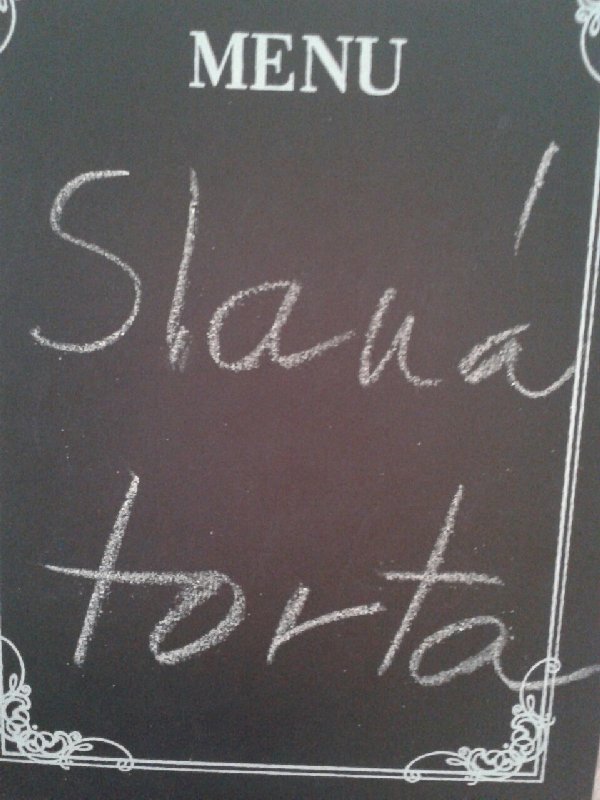 MENU
Slaná
torta